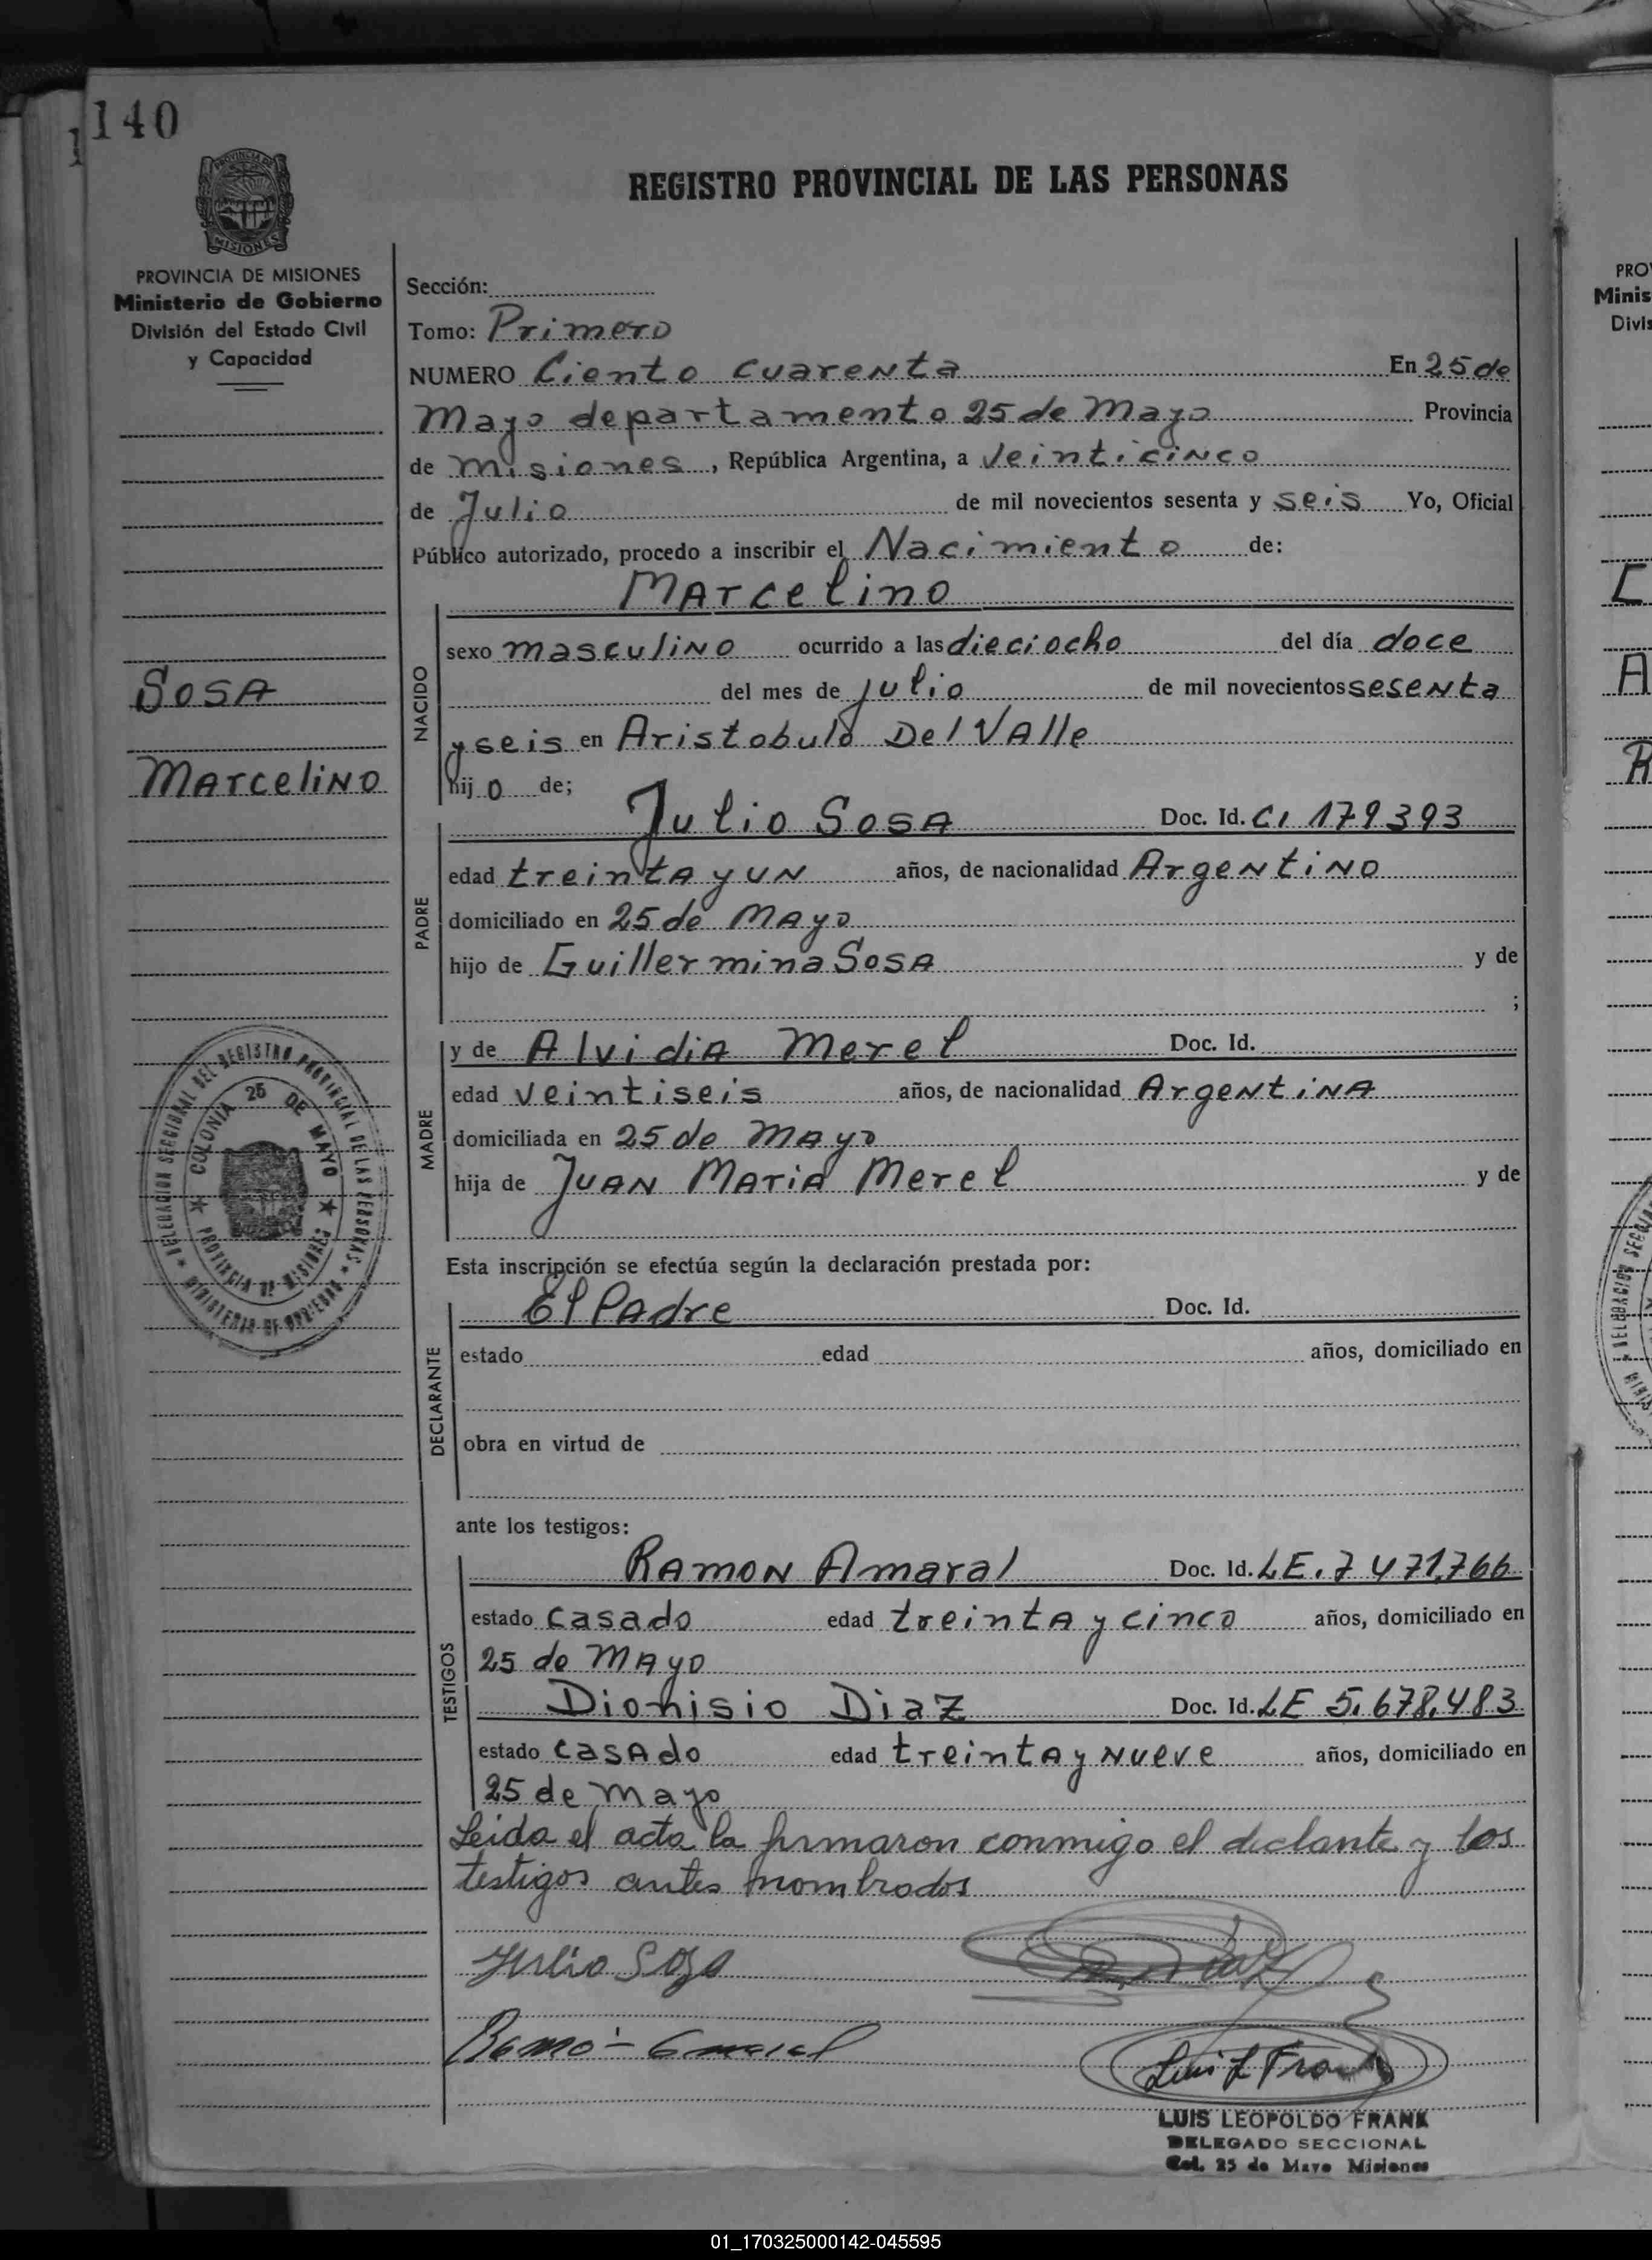 140
REGISTRO PROVINCIAL DE LAS PERSONAS
PROVINCIA DE MISIONES
MISIONES
PROVINCIA DE MISIONES
Ministerio de Gobierno
División del Estado Civil
y Capacidad
Sosa
Marcelino
DELEGACION SECCIONAL DEL REGISTRO PROVINCIAL DE LAS PERSONAS
MINISTERIO DE GOBIERNO
COLONIA 25 DE MAYO
PROVINCIA DE MISIONES
Sección:
Tomo: Primero
NUMERO Ciento cuarenta En 25 de
Mayo departamento 25 de Mayo Provincia
de Misiones, República Argentina, a Veinticinco
de Julio de mil novecientos sesenta y seis Yo, Oficial
Público autorizado, procedo a inscribir el Nacimiento de:
Marcelino
NACIDO
sexo masculino ocurrido a las dieciocho del día doce
del mes de julio de mil novecientos sesenta
y seis en Aristobulo Del Valle
hijo de;
PADRE
Julio Sosa Doc. Id. CI 179393
edad treinta y un años, de nacionalidad Argentino
domiciliado en 25 de Mayo
hijo de Guillermina Sosa y de
;
MADRE
y de Alvidia Merel Doc. Id.
edad veintiseis años, de nacionalidad Argentina
domiciliada en 25 de Mayo
hija de Juan Maria Merel y de
Esta inscripción se efectúa según la declaración prestada por:
DECLARANTE
El Padre Doc. Id.
estado edad años, domiciliado en
obra en virtud de
ante los testigos:
TESTIGOS
Ramon Amaral Doc. Id. LE. 7 471.766
estado casado edad treinta y cinco años, domiciliado en
25 de Mayo
Dionisio Diaz Doc. Id. LE 5.678.483
estado casado edad treinta y nueve años, domiciliado en
25 de Mayo
Leida el acta la firmaron conmigo el declante y los
testigos antes nombrados
Julio Sosa
Luis L Frank
LUIS LEOPOLDO FRANK
DELEGADO SECCIONAL
Col. 25 de Mayo Misiones
01_170325000142-045595